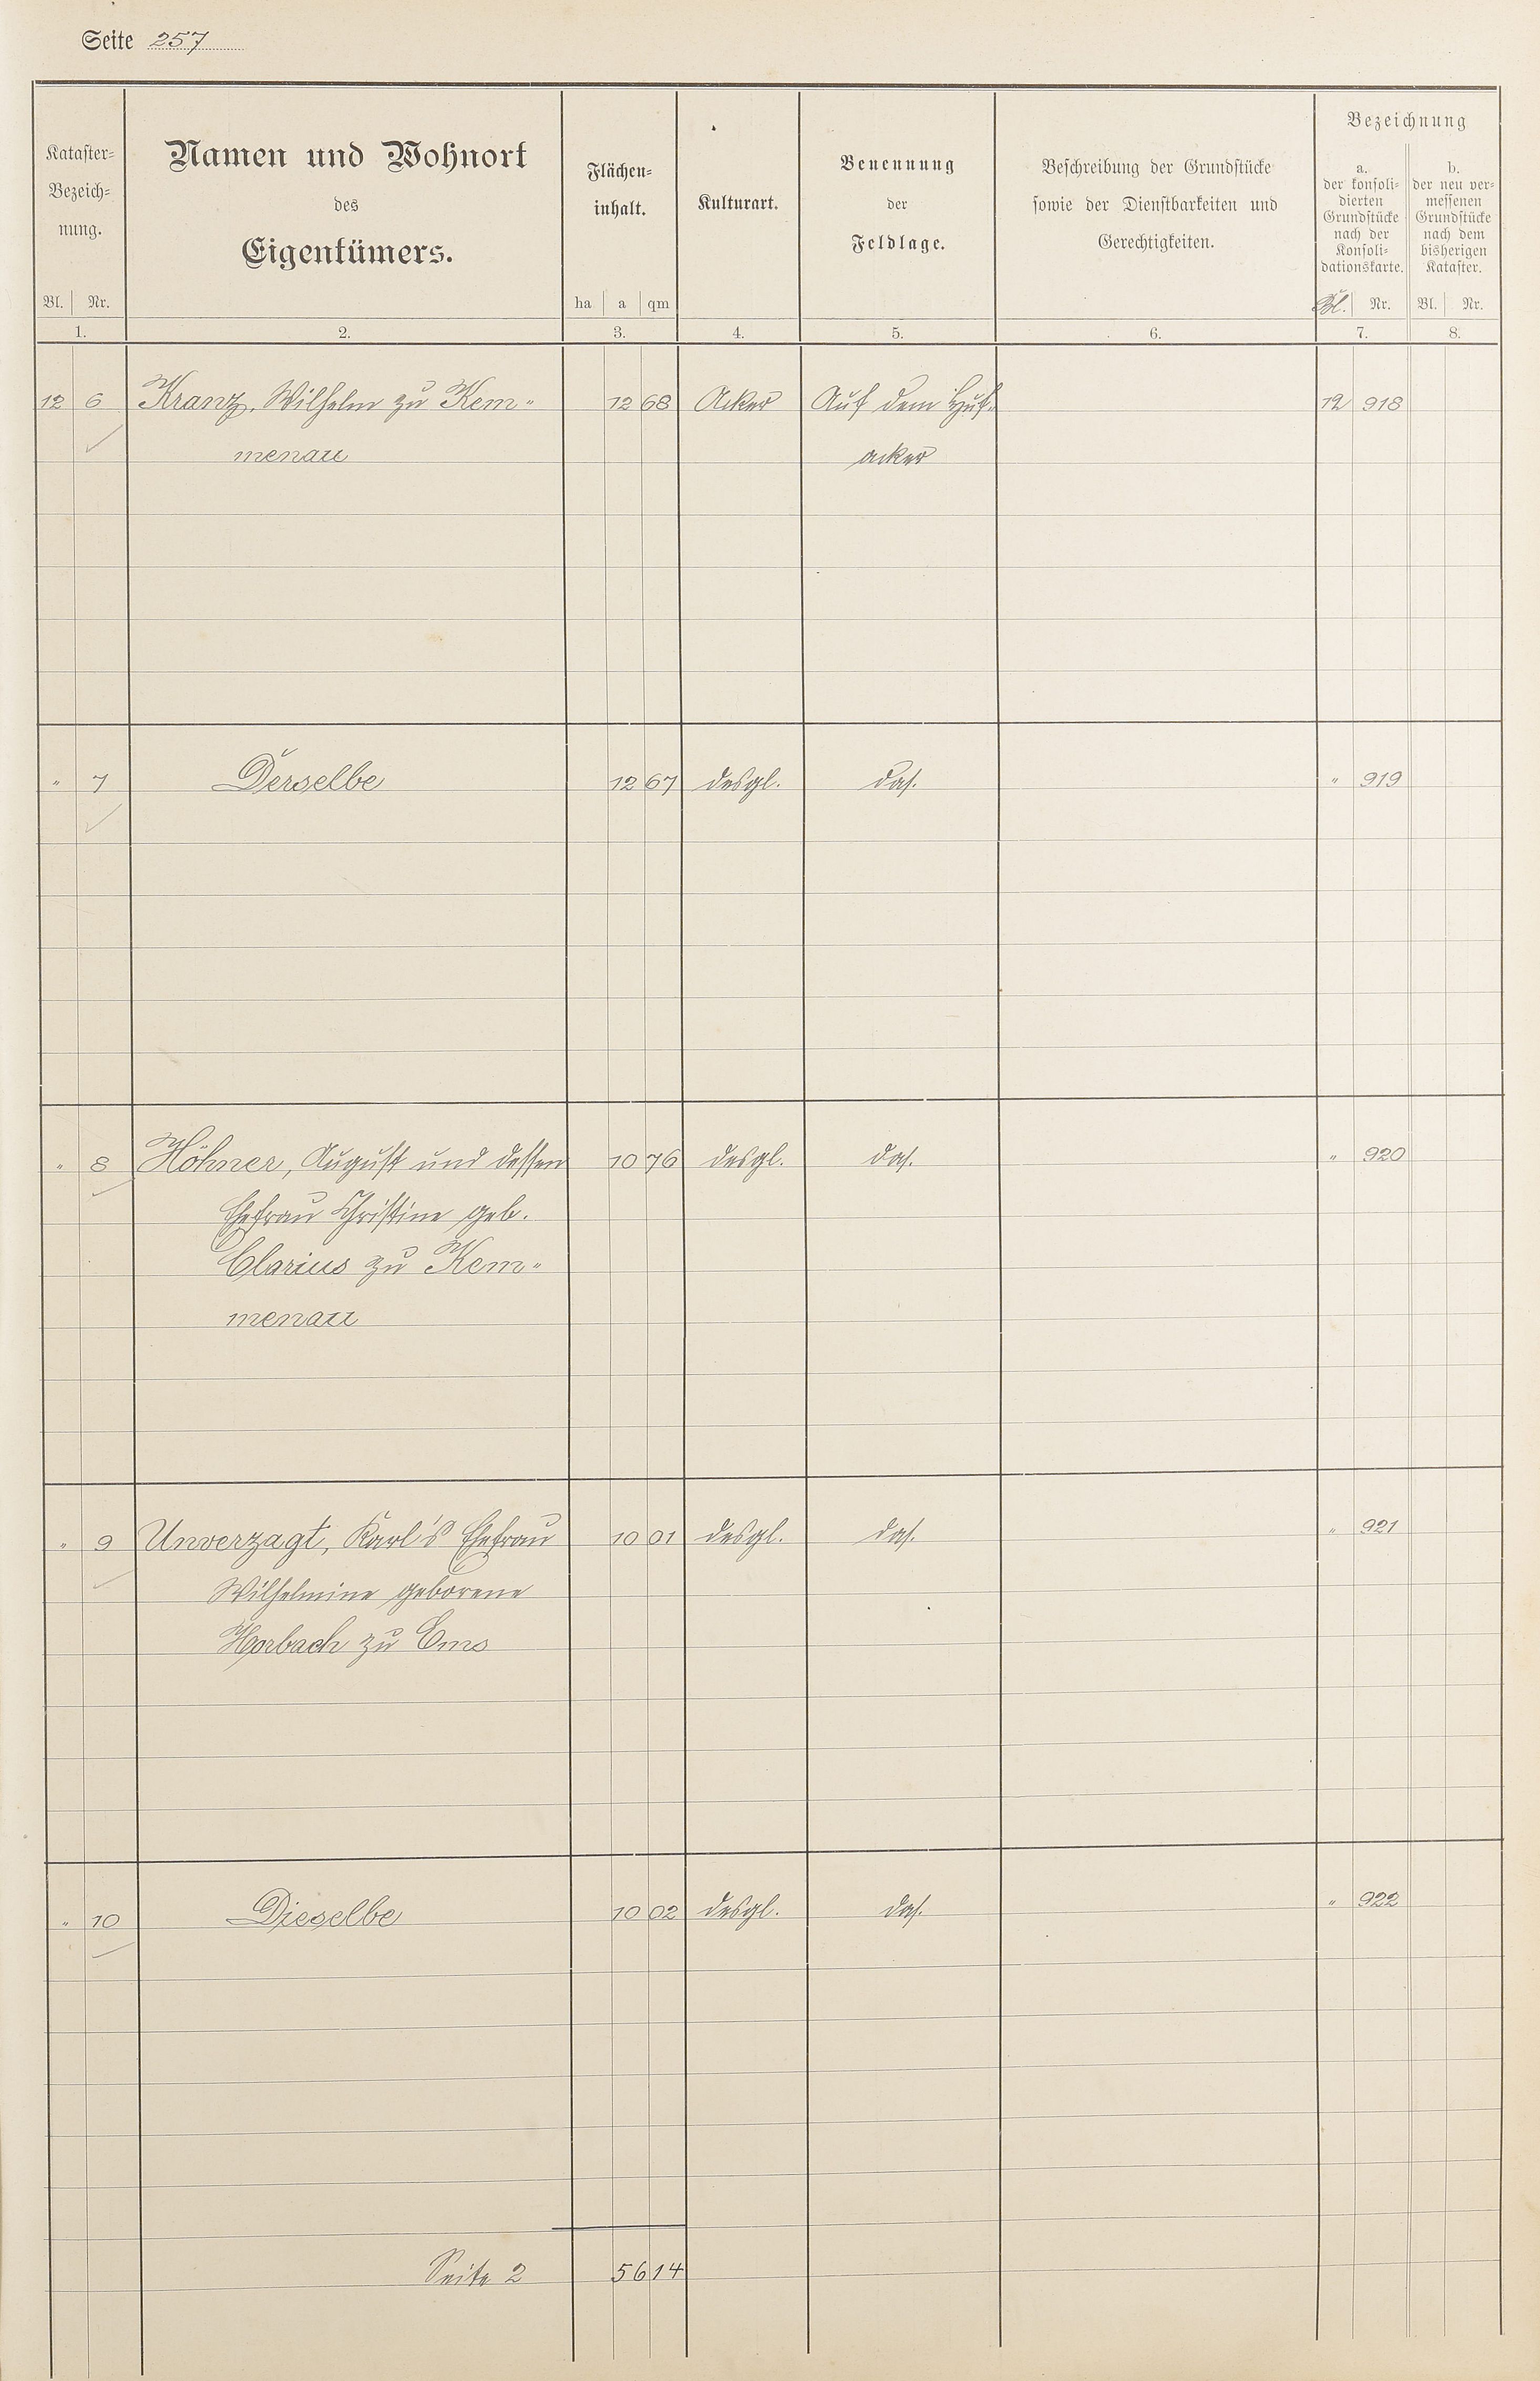 Seite 257
Kataster-
Bezeich-
nung.
Bl. Nr.
1.
Namen und Wohnort
des
Eigentümers.
2.
Flächen-
inhalt.
ha a qm
3.
Kulturart.
4.
Benennung
der
Feldlage.
5.
Beschreibung der Grundstücke
sowie der Dienstbarkeiten und
Gerechtigkeiten.
6.
Bezeichnung
a.
der konsoli-
dierten
Grundstücke
nach der
Konsoli-
dationskarte.
Bl. Nr.
7.
b.
der neu ver-
messenen
Grundstücke
nach dem
bisherigen
Kataster.
Bl. Nr.
8.
12 6 Kranz, Wilhelm zu Kem- 12 68 Acker Auf dem Huf- 12 918
menau acker
" 7 Derselbe 12 67 desgl. das. " 919
" 8 Höhner, August und dessen 10 76 desgl. das. " 920
Ehefrau Christine geb.
Clarius zu Kem-
menau
" 9 Unverzagt, Karl's Ehefrau 10 01 desgl. das. " 921
Wilhelmine geborene
Horbach zu Ems
" 10 Dieselbe 10 02 desgl. das. " 922
Seite 2 56 14